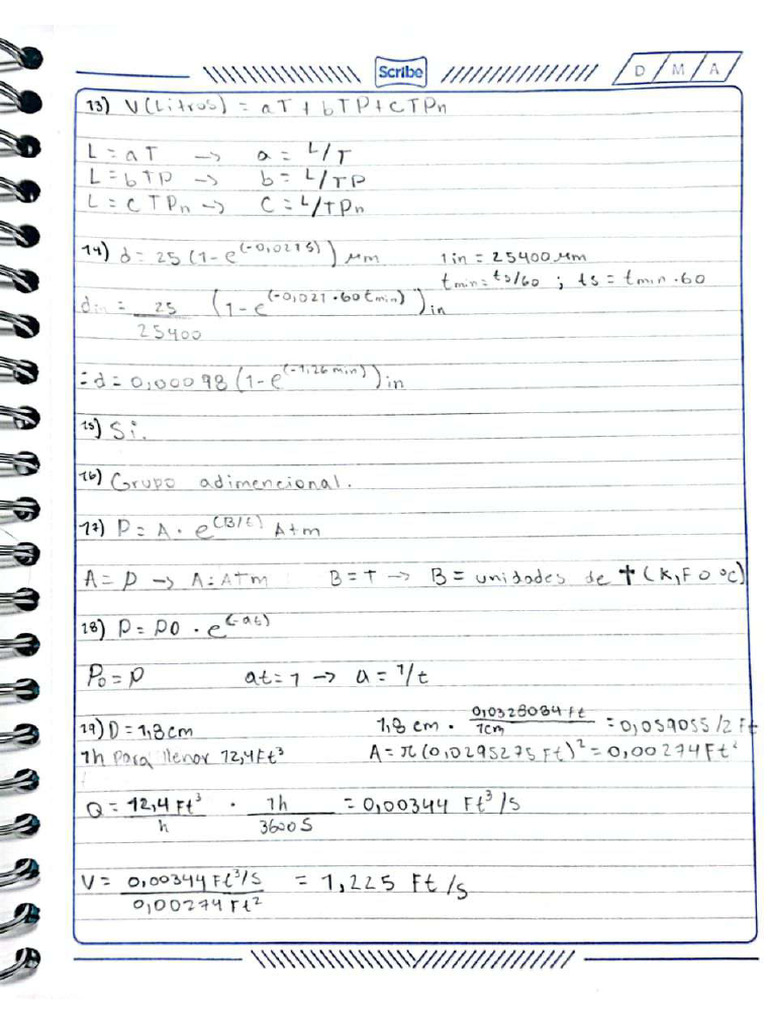 Scribe
D / M / A
13) V(Litros) = aT + bTP + cTPn
L = aT → a = L/T
L = bTP → b = L/TP
L = cTPn → C = L/TPn
14) d = 25 (1-e^(-0,021s)) μm 1in = 25400 μm
tmin = ts/60 ; ts = tmin·60
din = 25/25400 (1-e^(-0,021·60tmin)) in
= d = 0,00098 (1-e^(-1,26min)) in
15) Si.
16) Grupo adimencional.
17) P = A · e^(B/t) Atm
A = P → A = ATm B = T → B = unidades de T (K, F o °C)
18) P = P0 · e^(-at)
P₀ = P at = 1 → a = 1/t
19) D = 1,8cm 1,8 cm · 0,0328084 ft/1cm = 0,059055/2 Ft
1h para llenar 12,4 Ft³ A = π(0,0295275 Ft)² = 0,00274 Ft²
Q = 12,4 Ft³/h · 1h/3600S = 0,00344 Ft³/s
V = 0,00344 Ft³/s / 0,00274 Ft² = 1,225 Ft/s